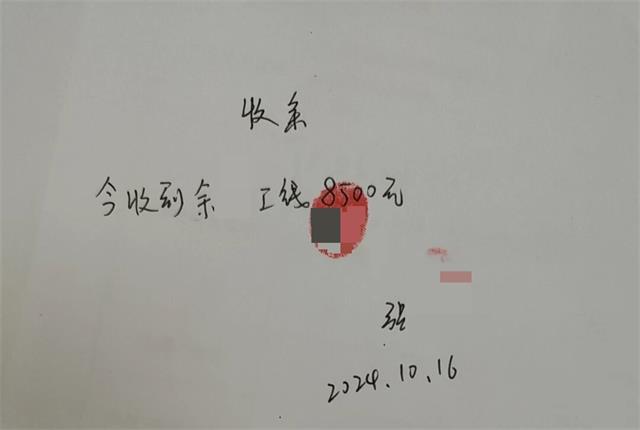 收条
今收到余 工钱。8500元
张
2024.10.16